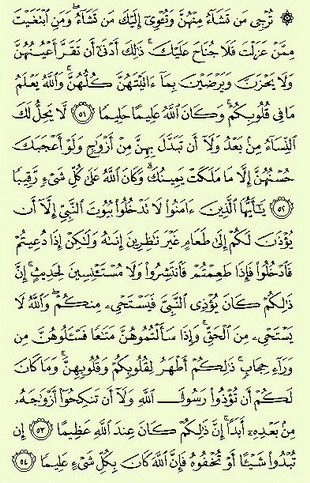 ۞ تُرْجِى مَن تَشَآءُ مِنْهُنَّ وَتُـْٔوِىٓ إِلَيْكَ مَن تَشَآءُ ۖ وَمَنِ ٱبْتَغَيْتَ
مِمَّنْ عَزَلْتَ فَلَا جُنَاحَ عَلَيْكَ ۚ ذَٰلِكَ أَدْنَىٰٓ أَن تَقَرَّ أَعْيُنُهُنَّ
وَلَا يَحْزَنَّ وَيَرْضَيْنَ بِمَآ ءَاتَيْتَهُنَّ كُلُّهُنَّ ۚ وَٱللَّهُ يَعْلَمُ
مَا فِى قُلُوبِكُمْ ۚ وَكَانَ ٱللَّهُ عَلِيمًا حَلِيمًا ٥١ لَّا يَحِلُّ لَكَ
ٱلنِّسَآءُ مِنۢ بَعْدُ وَلَآ أَن تَبَدَّلَ بِهِنَّ مِنْ أَزْوَٰجٍ وَلَوْ أَعْجَبَكَ
حُسْنُهُنَّ إِلَّا مَا مَلَكَتْ يَمِينُكَ ۗ وَكَانَ ٱللَّهُ عَلَىٰ كُلِّ شَىْءٍ رَّقِيبًا
٥٢ يَٰٓأَيُّهَا ٱلَّذِينَ ءَامَنُوا۟ لَا تَدْخُلُوا۟ بُيُوتَ ٱلنَّبِىِّ إِلَّآ أَن
يُؤْذَنَ لَكُمْ إِلَىٰ طَعَامٍ غَيْرَ نَٰظِرِينَ إِنَىٰهُ وَلَٰكِنْ إِذَا دُعِيتُمْ
فَٱدْخُلُوا۟ فَإِذَا طَعِمْتُمْ فَٱنتَشِرُوا۟ وَلَا مُسْتَـْٔنِسِينَ لِحَدِيثٍ ۚ إِنَّ
ذَٰلِكُمْ كَانَ يُؤْذِى ٱلنَّبِىَّ فَيَسْتَحْىِۦ مِنكُمْ ۖ وَٱللَّهُ لَا
يَسْتَحْىِۦ مِنَ ٱلْحَقِّ ۚ وَإِذَا سَأَلْتُمُوهُنَّ مَتَٰعًا فَسْـَٔلُوهُنَّ مِن
وَرَآءِ حِجَابٍ ۚ ذَٰلِكُمْ أَطْهَرُ لِقُلُوبِكُمْ وَقُلُوبِهِنَّ ۚ وَمَا كَانَ
لَكُمْ أَن تُؤْذُوا۟ رَسُولَ ٱللَّهِ وَلَآ أَن تَنكِحُوٓا۟ أَزْوَٰجَهُۥ
مِنۢ بَعْدِهِۦٓ أَبَدًا ۚ إِنَّ ذَٰلِكُمْ كَانَ عِندَ ٱللَّهِ عَظِيمًا ٥٣ إِن
تُبْدُوا۟ شَيْـًٔا أَوْ تُخْفُوهُ فَإِنَّ ٱللَّهَ كَانَ بِكُلِّ شَىْءٍ عَلِيمًا ٥٤